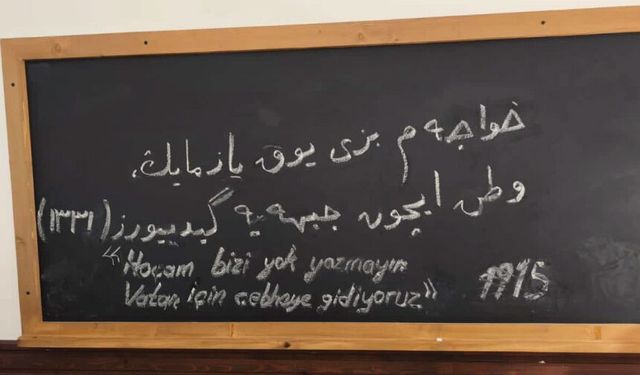 خواجه م بزی یوق یازمایك.
وطن ایچون جبهه یه گیدییورز (١٣٣١)
“Hocam bizi yok yazmayın
Vatan için cebheye gidiyoruz” 1915